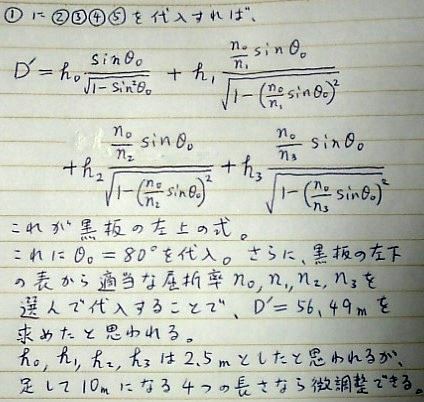 ①に②③④⑤を代入すれば、
D' = h₀ sinθ₀/√(1-sin²θ₀) + h₁ (n₀/n₁ sinθ₀)/√(1-(n₀/n₁ sinθ₀)²)
+ h₂ (n₀/n₂ sinθ₀)/√(1-(n₀/n₂ sinθ₀)²) + h₃ (n₀/n₃ sinθ₀)/√(1-(n₀/n₃ sinθ₀)²)
これが黒板の左上の式。
これにθ₀=80°を代入。さらに、黒板の左下
の表から適当な屈折率n₀,n₁,n₂,n₃を
選んで代入することで、D'=56,49mを
求めたと思われる。
h₀,h₁,h₂,h₃は2,5mとしたと思われるが、
足して10mになる4つの長さなら微調整できる。